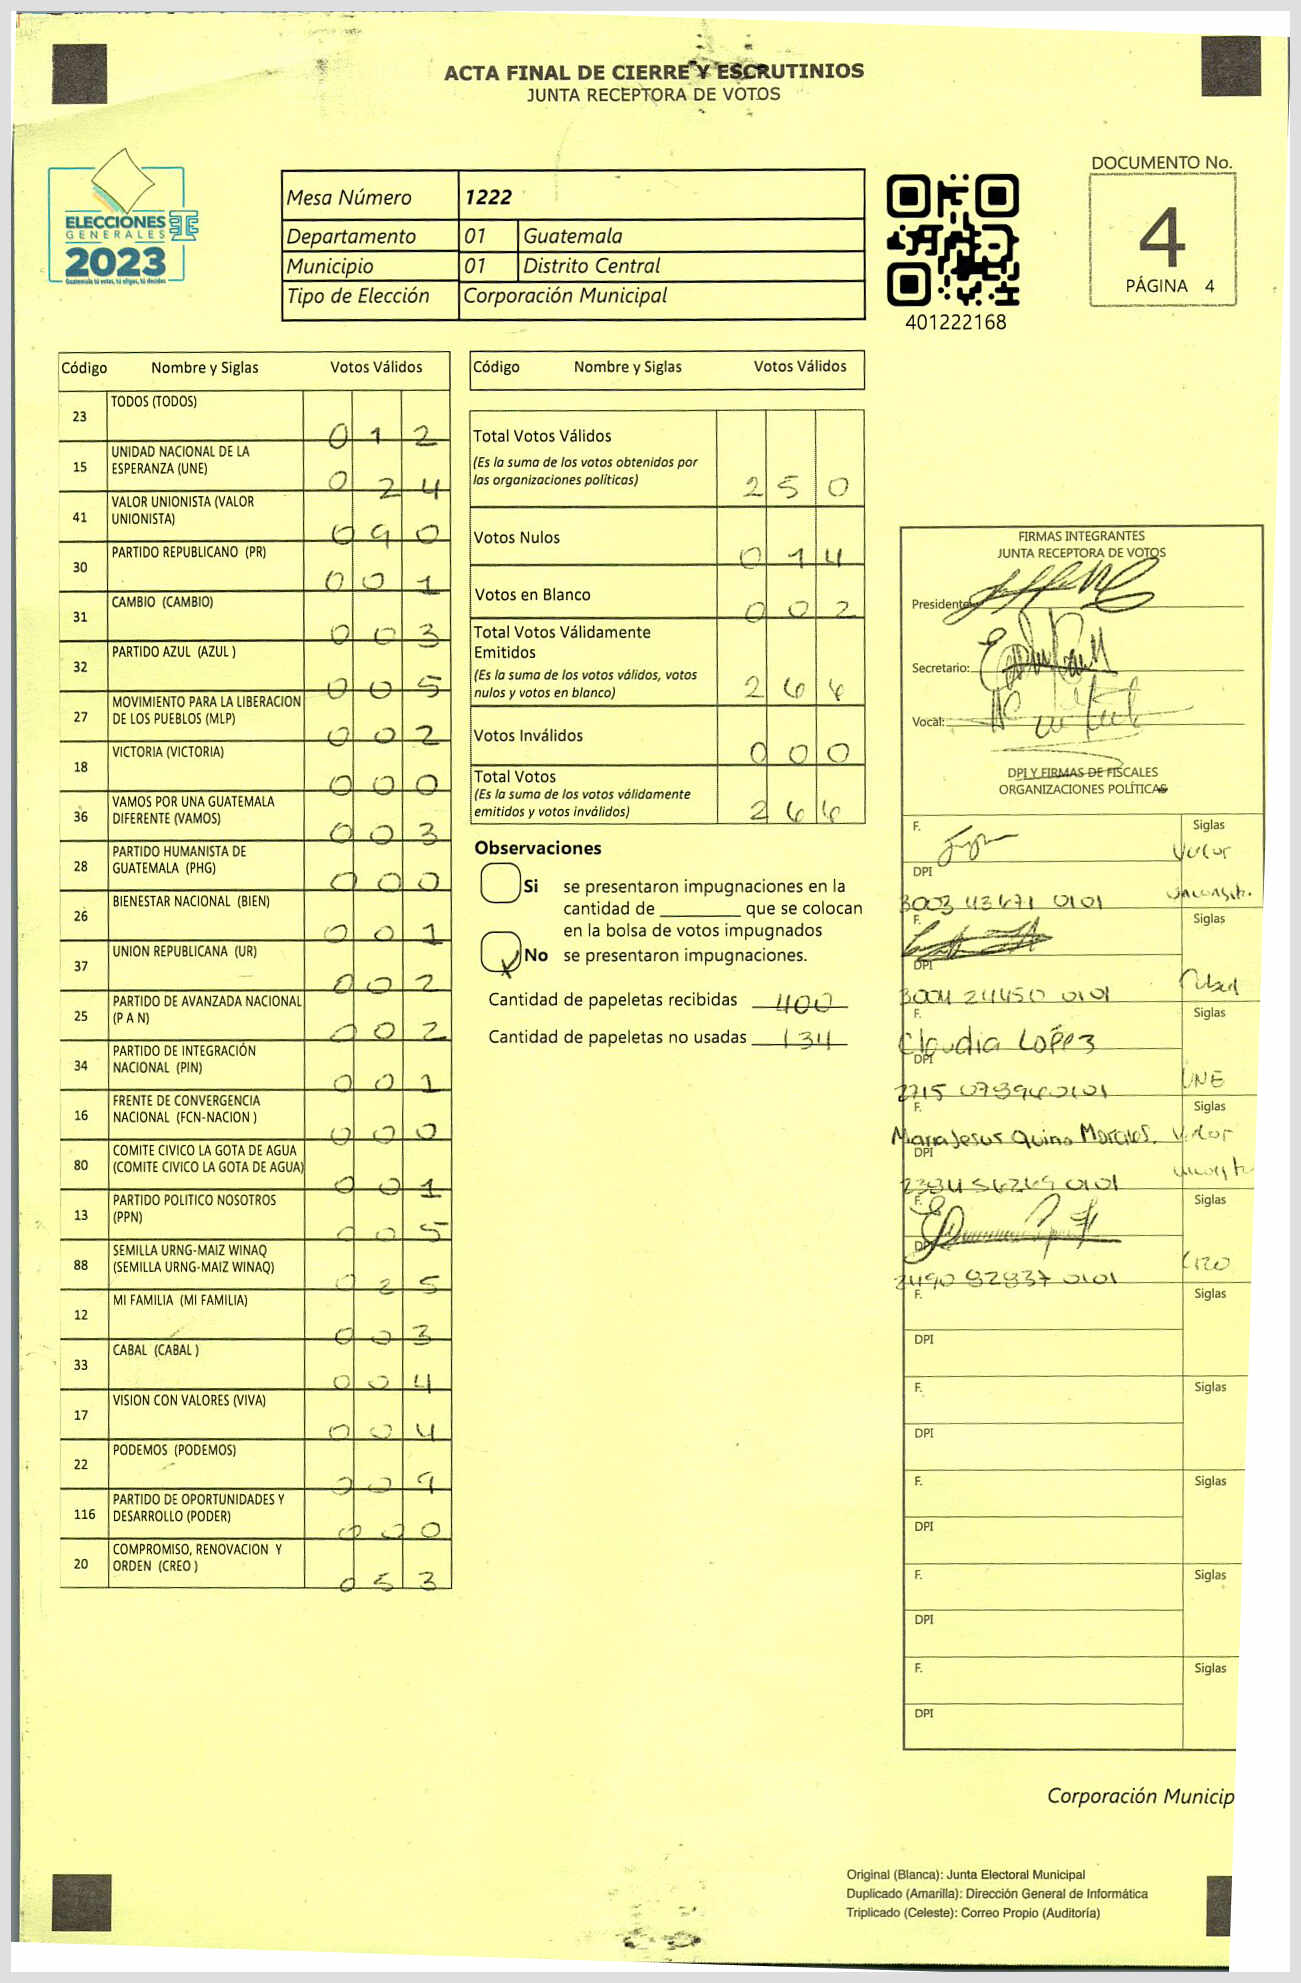 ACTA FINAL DE CIERRE Y ESCRUTINIOS
JUNTA RECEPTORA DE VOTOS
ELECCIONES
GENERALES
2023
Guatemala tú votas, tú eliges, tú decides
Mesa Número 1222
Departamento 01 Guatemala
Municipio 01 Distrito Central
Tipo de Elección Corporación Municipal
401222168
DOCUMENTO No.
4
PÁGINA 4
Código Nombre y Siglas Votos Válidos
23 TODOS (TODOS) 0 1 2
15 UNIDAD NACIONAL DE LA ESPERANZA (UNE) 0 2 4
41 VALOR UNIONISTA (VALOR UNIONISTA) 0 9 0
30 PARTIDO REPUBLICANO (PR) 0 0 1
31 CAMBIO (CAMBIO) 0 0 3
32 PARTIDO AZUL (AZUL ) 0 0 5
27 MOVIMIENTO PARA LA LIBERACION DE LOS PUEBLOS (MLP) 0 0 2
18 VICTORIA (VICTORIA) 0 0 0
36 VAMOS POR UNA GUATEMALA DIFERENTE (VAMOS) 0 0 3
28 PARTIDO HUMANISTA DE GUATEMALA (PHG) 0 0 0
26 BIENESTAR NACIONAL (BIEN) 0 0 1
37 UNION REPUBLICANA (UR) 0 0 2
25 PARTIDO DE AVANZADA NACIONAL (P A N) 0 0 2
34 PARTIDO DE INTEGRACIÓN NACIONAL (PIN) 0 0 1
16 FRENTE DE CONVERGENCIA NACIONAL (FCN-NACION ) 0 0 0
80 COMITE CIVICO LA GOTA DE AGUA (COMITE CIVICO LA GOTA DE AGUA) 0 0 1
13 PARTIDO POLITICO NOSOTROS (PPN) 0 0 5
88 SEMILLA URNG-MAIZ WINAQ (SEMILLA URNG-MAIZ WINAQ) 0 2 5
12 MI FAMILIA (MI FAMILIA) 0 0 3
33 CABAL (CABAL ) 0 0 4
17 VISION CON VALORES (VIVA) 0 0 4
22 PODEMOS (PODEMOS) 0 0 9
116 PARTIDO DE OPORTUNIDADES Y DESARROLLO (PODER) 0 0 0
20 COMPROMISO, RENOVACION Y ORDEN (CREO ) 0 5 3
Código Nombre y Siglas Votos Válidos
Total Votos Válidos
(Es la suma de los votos obtenidos por
las organizaciones políticas) 2 5 0
Votos Nulos 0 1 4
Votos en Blanco 0 0 2
Total Votos Válidamente
Emitidos
(Es la suma de los votos válidos, votos
nulos y votos en blanco) 2 6 6
Votos Inválidos 0 0 0
Total Votos
(Es la suma de los votos válidamente
emitidos y votos inválidos) 2 6 6
Observaciones
Si se presentaron impugnaciones en la
cantidad de ________ que se colocan
en la bolsa de votos impugnados
No se presentaron impugnaciones.
Cantidad de papeletas recibidas 400
Cantidad de papeletas no usadas 134
FIRMAS INTEGRANTES
JUNTA RECEPTORA DE VOTOS
Presidente:
Secretario:
Vocal:
DPI Y FIRMAS DE FISCALES
ORGANIZACIONES POLÍTICAS
F. Siglas
Valor
DPI
3003 43671 0101
F. Siglas
DPI
3004 24450 0101
F. Siglas
Claudia López
DPI
2715 07394 0101 UNE
F. Siglas
Maria Jesus Quino Morales. Valor
DPI
F. Siglas
DPI
2490 82837 0101 CREO
F. Siglas
DPI
F. Siglas
DPI
F. Siglas
DPI
F. Siglas
DPI
F. Siglas
DPI
Corporación Municip
Original (Blanca): Junta Electoral Municipal
Duplicado (Amarilla): Dirección General de Informática
Triplicado (Celeste): Correo Propio (Auditoría)